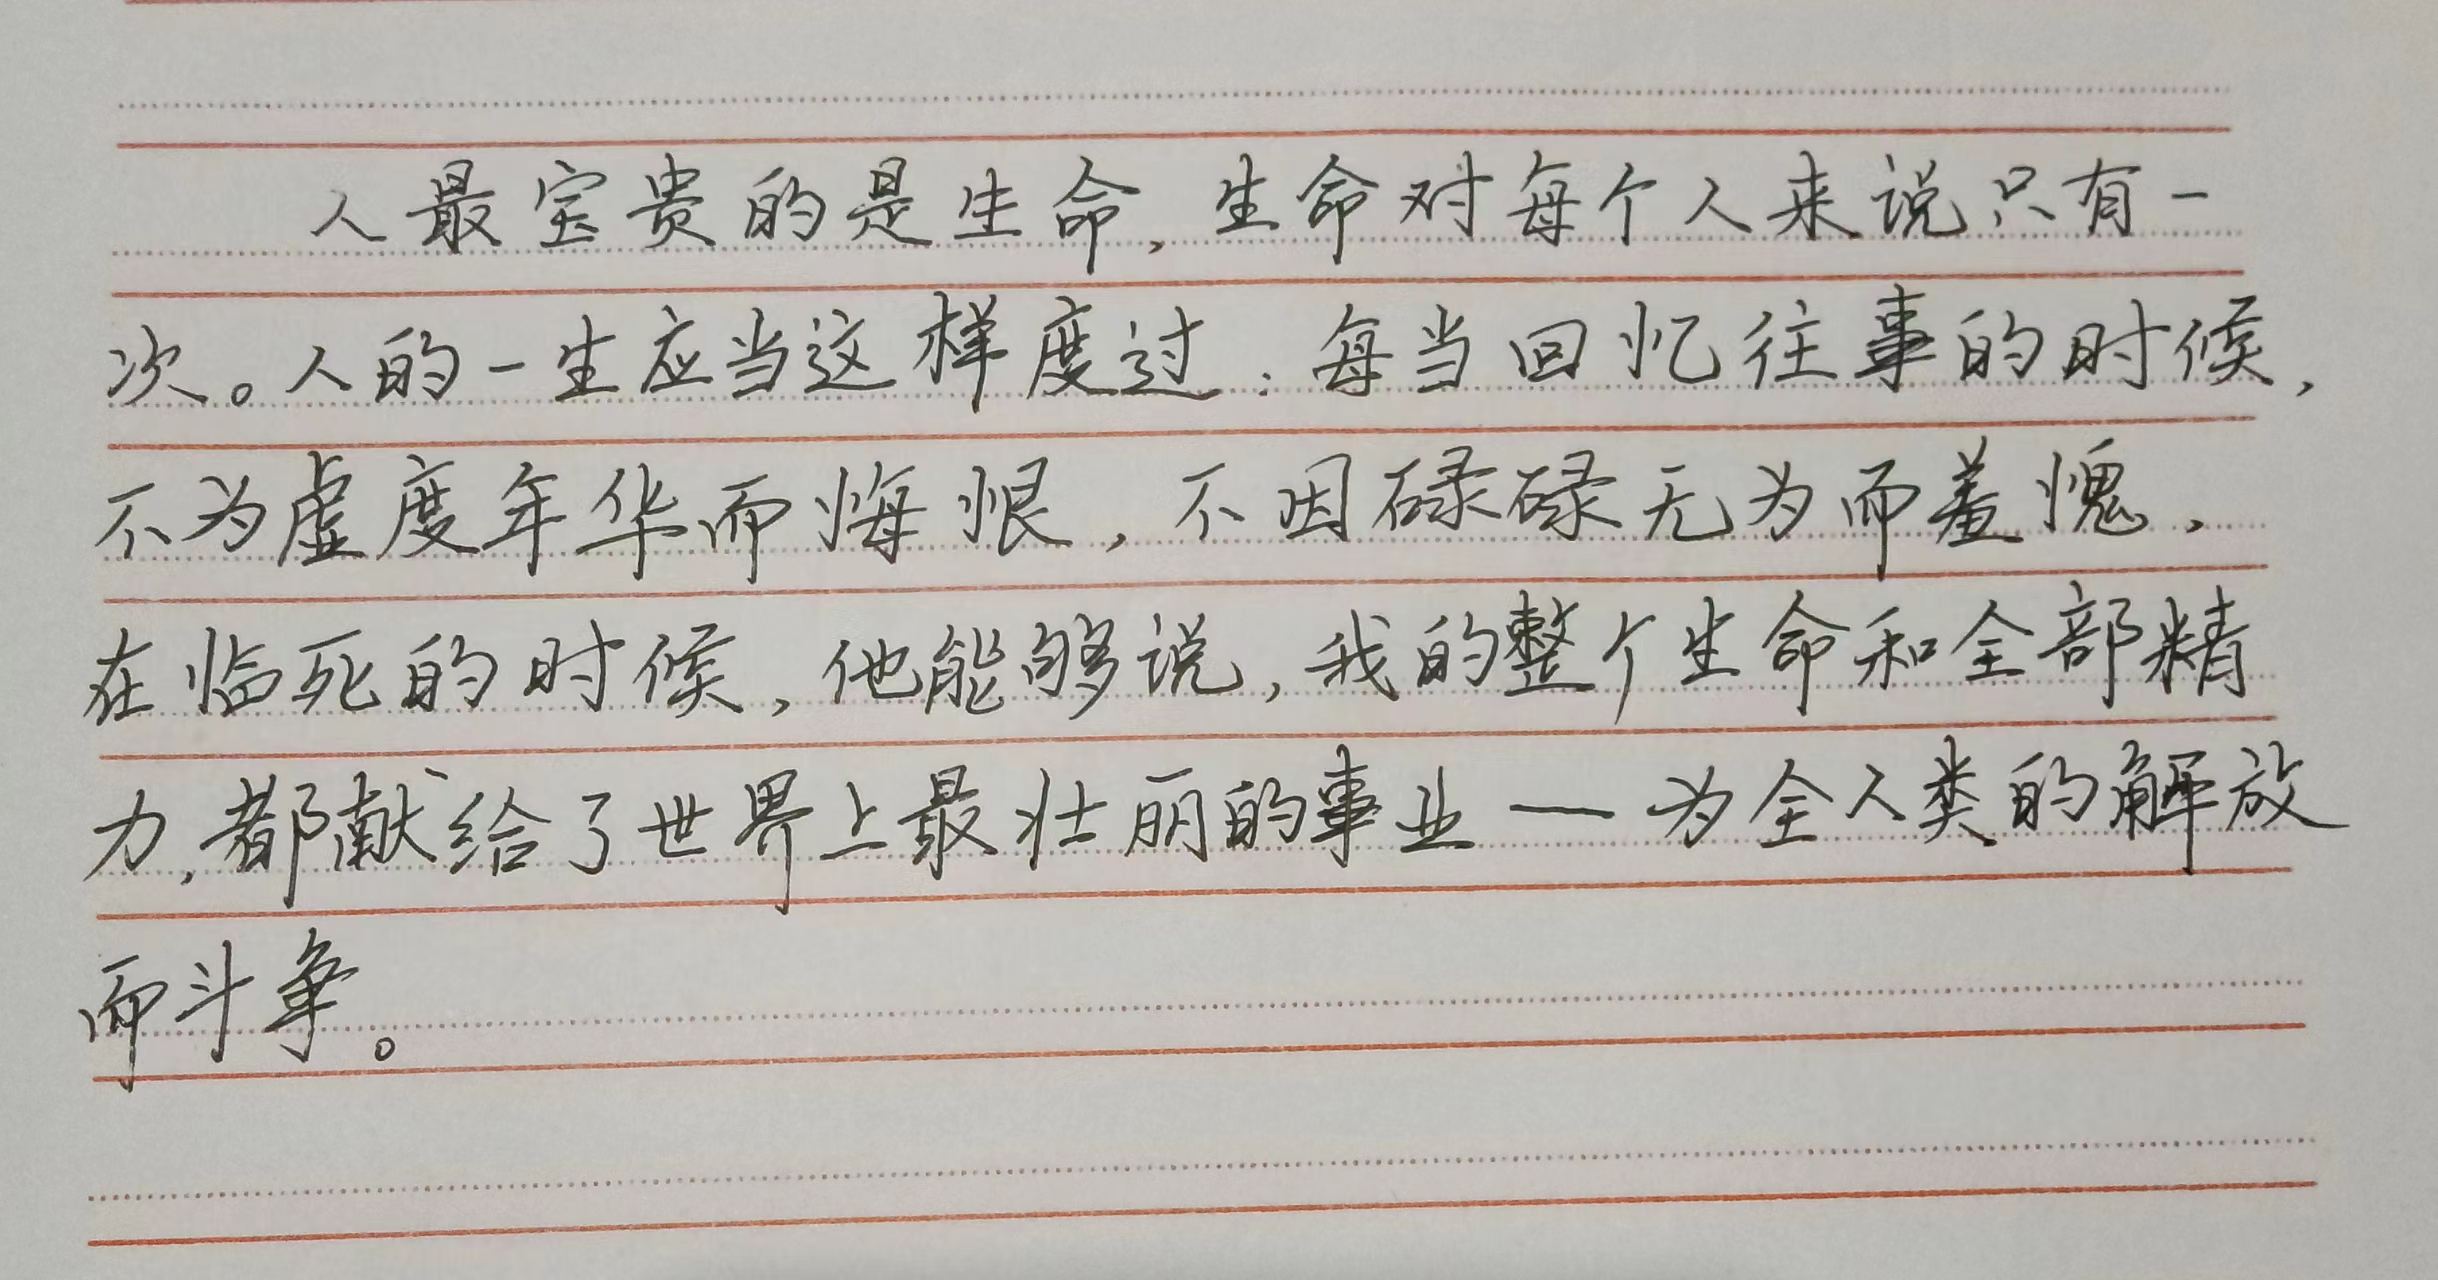 人最宝贵的是生命，生命对每个人来说只有一
次。人的一生应当这样度过：每当回忆往事的时候，
不为虚度年华而悔恨，不因碌碌无为而羞愧，
在临死的时候，他能够说，我的整个生命和全部精
力，都献给了世界上最壮丽的事业—为全人类的解放
而斗争。